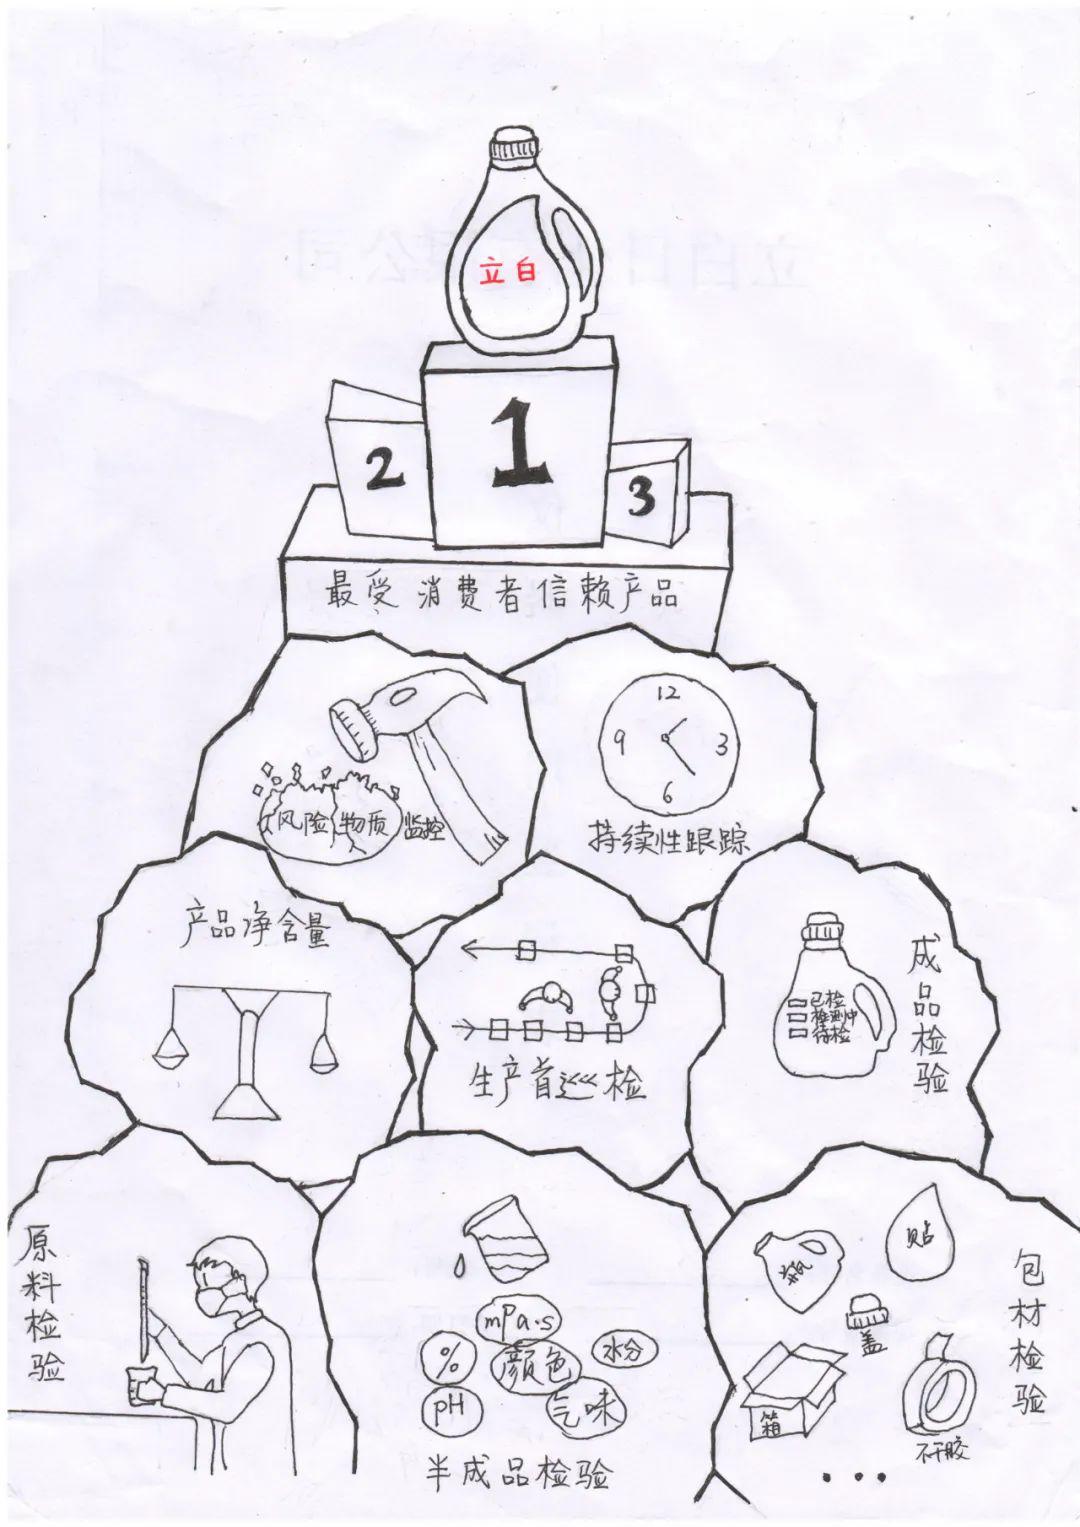 立白
1
2
3
最受消费者信赖产品
风险物质监控
12
9
3
6
持续性跟踪
产品净含量
生产首巡检
已检
检测中
待检
成品检验
原料检验
mPa·s
%
颜色
水分
pH
气味
半成品检验
瓶
贴
盖
箱
不干胶
包材检验
...